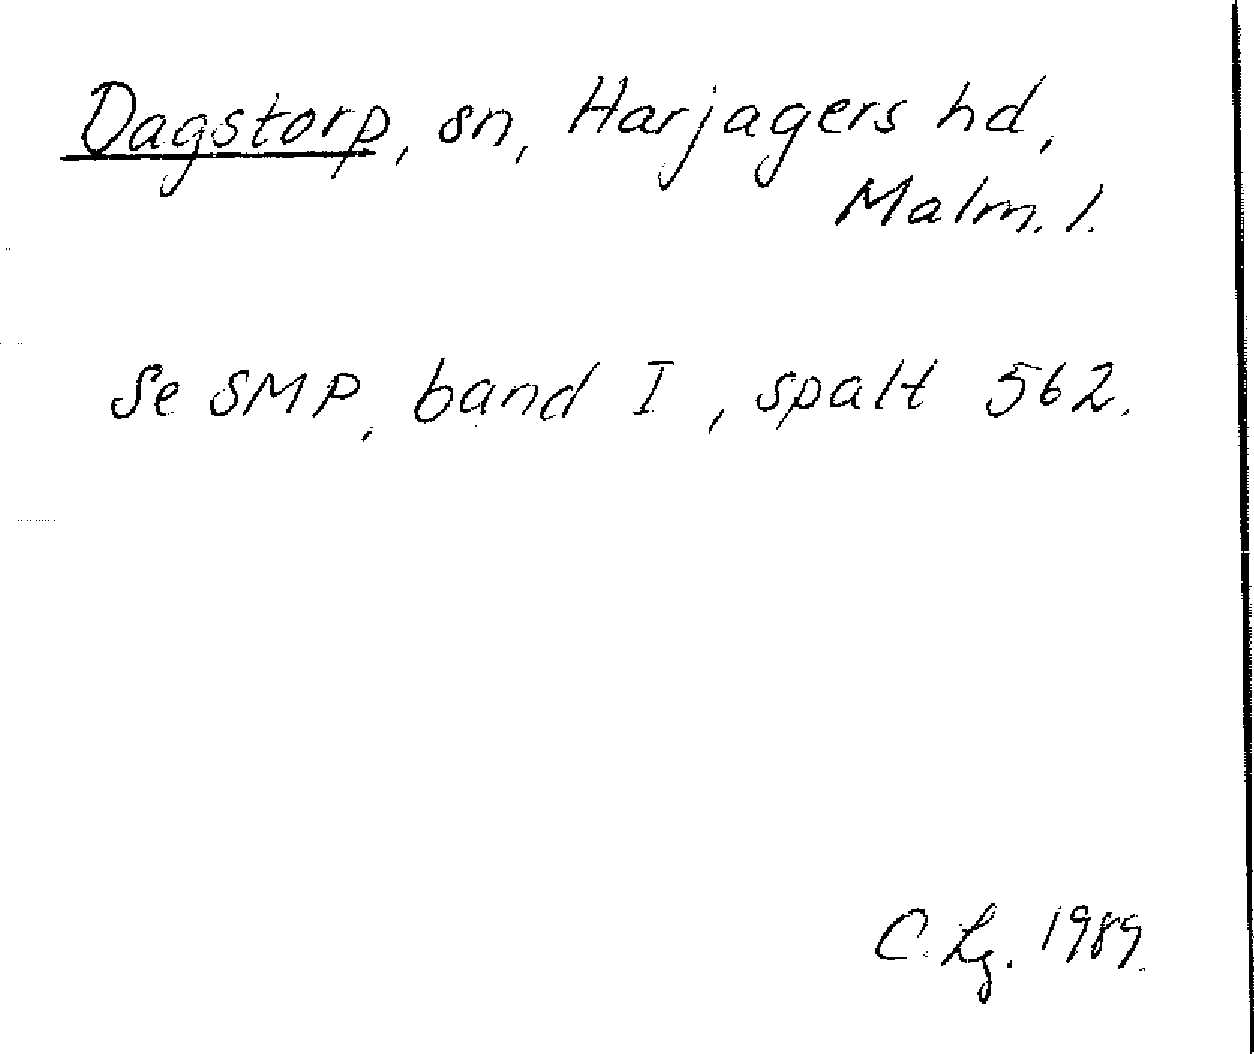 Dagstorp, sn, Harjagers hd,
Malm. l.
Se SMP, band I, spalt 562.
C. Lg. 1989.